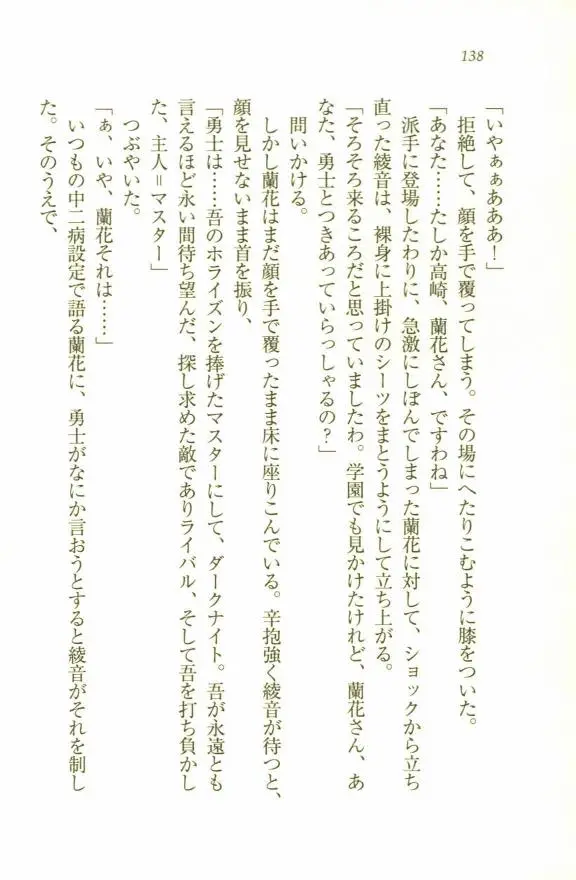 138
「いやぁぁあああ！」
　拒絶して、顔を手で覆ってしまう。その場にへたりこむように膝をついた。
「あなた……たしか高崎、蘭花さん、ですわね」
　派手に登場したわりに、急激にしぼんでしまった蘭花に対して、ショックから立ち
直った綾音は、裸身に上掛けのシーツをまとうようにして立ち上がる。
「そろそろ来るころだと思っていましたわ。学園でも見かけたけれど、蘭花さん、あ
なた、勇士とつきあっていらっしゃるの？」
　問いかける。
　しかし蘭花はまだ顔を手で覆ったまま床に座りこんでいる。辛抱強く綾音が待つと、
顔を見せないまま首を振り、
「勇士は……吾のホライズンを捧げたマスターにして、ダークナイト。吾が永遠とも
言えるほど永い間待ち望んだ、探し求めた敵でありライバル、そして吾を打ち負かし
た、主人＝マスター」
　つぶやいた。
「ぁ、いや、蘭花それは……」
　いつもの中二病設定で語る蘭花に、勇士がなにか言おうとすると綾音がそれを制し
た。そのうえで、